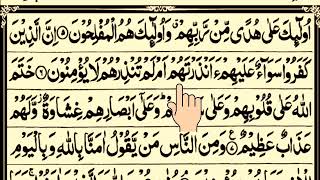 اُولٰٓئِكَ عَلٰی هُدًی مِّنْ رَّبِّهِمْ ۙ وَاُولٰٓئِكَ هُمُ الْمُفْلِحُوْنَ ۝۵ اِنَّ الَّذِیْنَ
كَفَرُوْا سَوَآءٌ عَلَیْهِمْ ءَاَنْذَرْتَهُمْ اَمْ لَمْ تُنْذِرْهُمْ لَا یُؤْمِنُوْنَ ۝۶ خَتَمَ
اللّٰهُ عَلٰی قُلُوْبِهِمْ وَعَلٰی ؕ وَعَلٰۤی اَبْصَارِهِمْ غِشَاوَةٌ ؗ وَّلَهُمْ
عَذَابٌ عَظِیْمٌ ۝۷ وَمِنَ النَّاسِ مَنْ یَّقُوْلُ اٰمَنَّا بِاللّٰهِ وَبِالْیَوْمِ